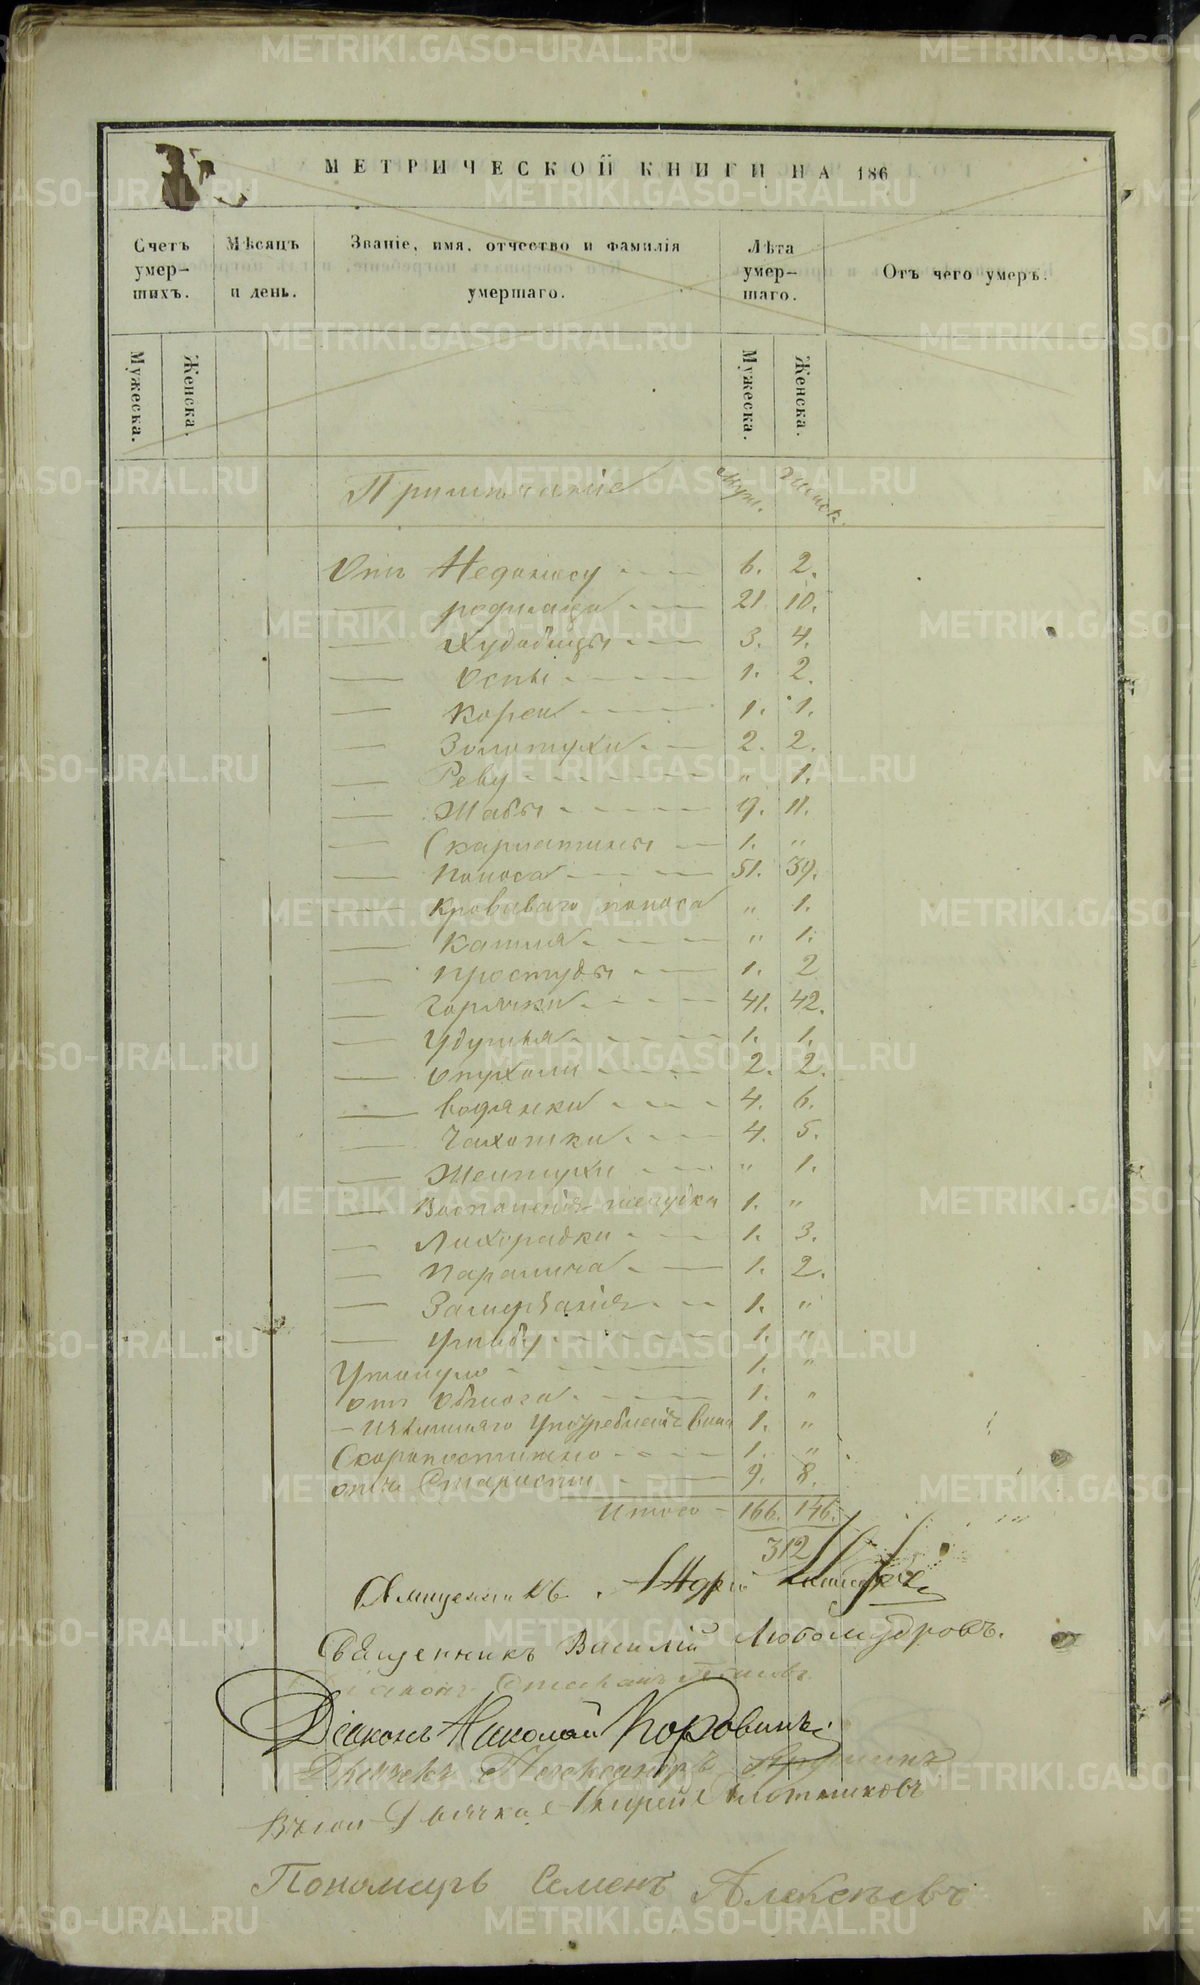 МЕТРИЧЕСКОЙ КНИГИ НА 186
Счетъ умер- шихъ.
Мѣсяцъ и день.
Званіе, имя, отчество и фамилія умершаго.
Лѣта умер- шаго.
Отъ чего умеръ.
Мужеска. Женска. Мужеска. Женска.
Примѣчаніе Муж. Женск.
Отъ Недоносу 6. 2.
— родимца 21. 10.
— Худобищы 3. 4.
— Оспы 1. 2.
— Кореи 1. 1.
— Золотухи 2. 2.
— Реву „ 1.
— Жабы 9. 11.
— Скарлатины 1. „
— Поноса 51. 39.
— Кроваваго поноса „ 1.
— Кашля „ 1.
— Простуды 1. 2
— Горячки 41. 42.
— Удушья 1. 1.
— Опухоли 2. 2.
— Водянки 4. 6.
— Чахотки 4. 5.
— Желтухи „ 1.
— Воспаленія желудка 1. „
— Лихорадки 1. 3.
— Паралича 1. 2.
— Замерзанія 1. „
— Ушибу 1. „
Утонуло 1. „
отъ Обжога 1. „
— Излишняго Употребленія вина 1. „
Скоропостижно 1. „
отъ Старости 9. 8.
Итого 166. 146.
312
Священникъ
Священникъ Василій Любомудровъ.
Діаконъ Стефанъ
Діаконъ Николай Коровинъ
Дьячекъ Александръ
Дьячка Андрей Плотниковъ
Пономарь Семенъ Алексѣевъ
METRIKI.GASO-URAL.RU